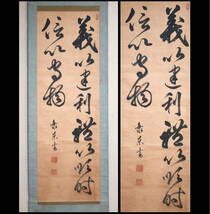 義以建利禮以順時
信以守物
義以建利禮以順時
信以守物